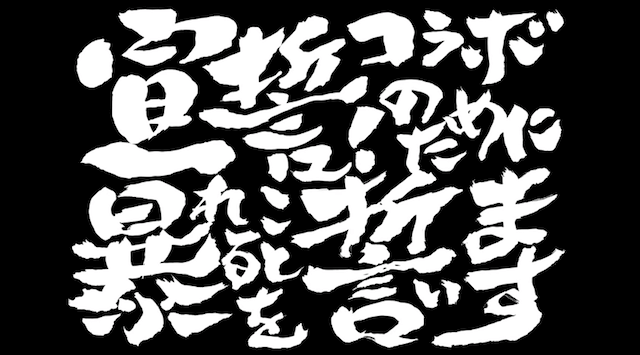 宣誓！コラボのために
暴れることを誓います